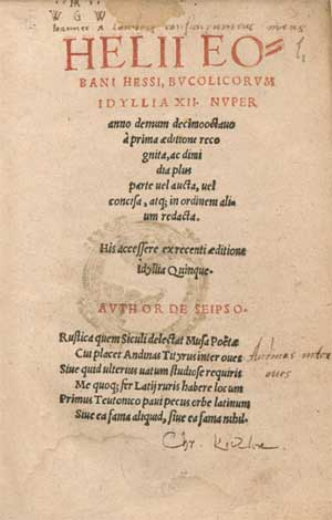 W G W
HELII EO=
BANI HESSI, BVCOLICORVM
IDYLLIA XII. NVPER
anno demum decimooctauo
à prima æditione reco
gnita, ac dimi
dia plus
parte uel aucta, uel
concisa, atq; in ordinem aliu
um redacta.
His accessere ex recenti æditione
Idyllia Quinque.
AVTHOR DE SEIPSO.
Rustica quem Siculi delectat Musa Poëtæ
Cui placet Andinas Tityrus inter oues
Siue quid ulterius uatum studiose requiris
Me quoq; fer Latij ruris habere locum
Primus Teutonico paui pecus orbe latinum
Siue ea fama aliquid, siue ea fama nihil.
Andinas inter
oues
Chr.